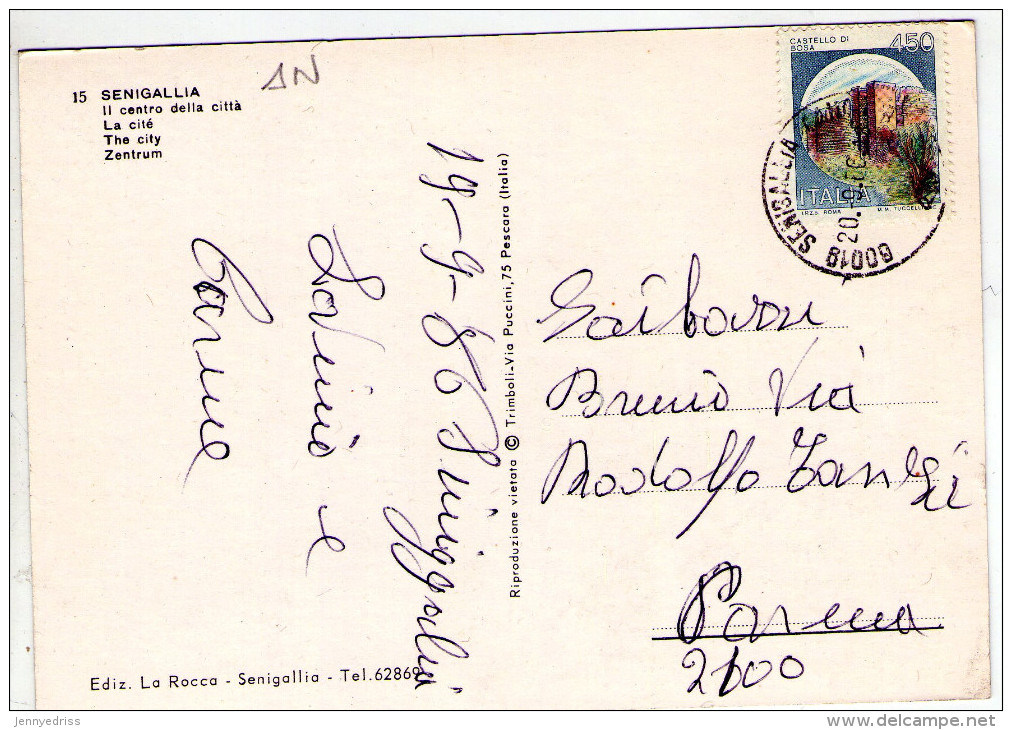 15 SENIGALLIA
Il centro della città
La cité
The city
Zentrum
AN
CASTELLO DI
BOSA
450
ITALIA
I.P.Z.S. ROMA M.M. TUCCELLI
60019 SENIGALLIA
20.
19-9-86 Senigallia
e
Reproduzione vietata © Trimboli-Via Puccini,75 Pescara (Italia)
Bruno Via
Rodolfo Tanzi
Parma
2100
Ediz. La Rocca - Senigallia - Tel.62869
jennyedriss
www.delcampe.net